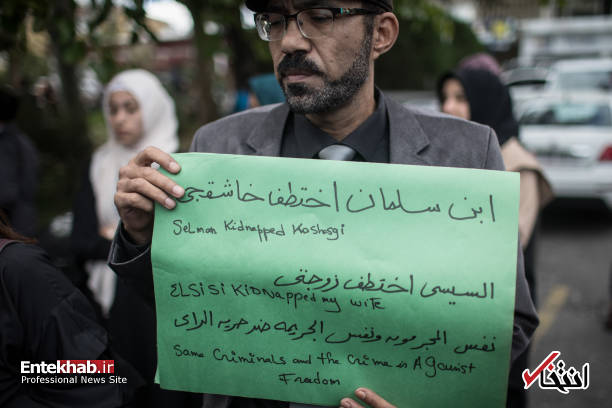 ابن سلمان اختطف خاشقجى
Selman Kidnapped Koshogi
السيسى اختطف زوجتى
ELSISI KIDNAPPED my wife
نفس المجرمون ونفس الجريمه ضد حريه الراى
Same Criminals and the Crime is Against
Freedom
Entekhab.ir
Professional News Site
انتخاب